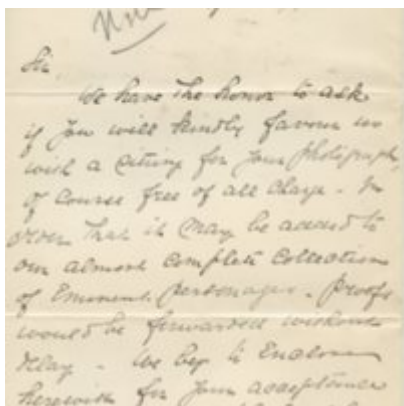 Sir
We have the honor to ask
if you will kindly favour us
with a sitting for your photograph,
of course free of all charge - In
order that it may be added to
our almost complete collection
of Eminent personages. proofs
would be forwarded without
delay - We beg to Enclose
herewith for your acceptance